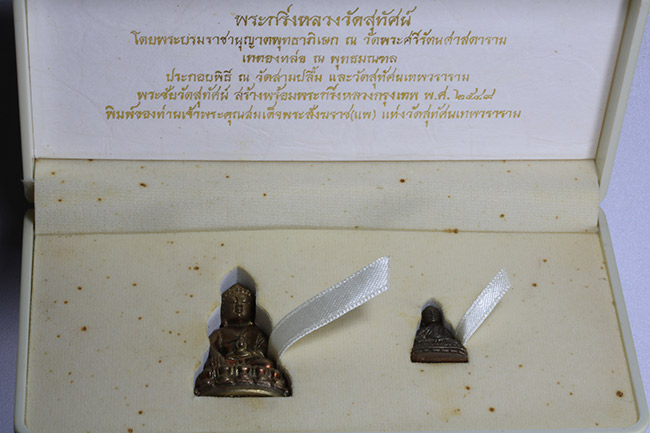 พระกริ่งหลวงวัดสุทัศน์
โดยพระบรมราชานุญาตพุทธาภิเษก ณ วัดพระศรีรัตนศาสดาราม
เททองหล่อ ณ พุทธมณฑล
ประกอบพิธี ณ วัดสามปลื้ม และวัดสุทัศนเทพวราราม
พระชัยวัดสุทัศน์ สร้างพร้อมพระกริ่งหลวงกรุงเทพ พ.ศ. ๒๔๔๘
พิมพ์ของท่านเจ้าพระคุณสมเด็จพระสังฆราช(แพ) แห่งวัดสุทัศนเทพวราราม